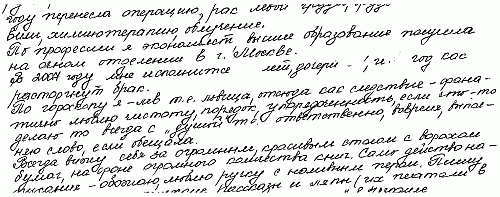 году перенесла операцию, рас левой груди,
были химиотерапию, облучение.
По профессии я экономист, высшее образование получила
на очном отделении в г. Москве.
В 2004 году мне исполнится лет, дочери и год как
расторгнут брак.
По гороскопу я - лев т.е. львица, отсюда как следствие - фана-
тично люблю чистоту, порядок, упорядоченность, если что-то
делаю то всегда с "душой" т.е. ответственно, вовремя, выпол-
няю слово, если обещала.
Всегда вижу себя за огромным, красивым столом с ворохом
бумаг, на фоне огромного количества книг. Само действо на-
писания - обожаю, люблю ручку с наливным пером. Пишу
рассказы и